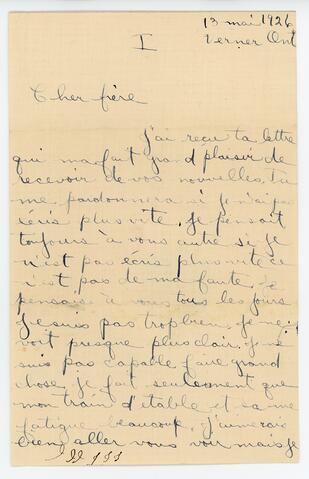 13 mai 1926
Verner Ont
I
Cher frère
J'ai reçu ta lettre
qui ma fait grand plaisir de
recevoir de vos nouvelles, tu
me pardonnera si je n'ai pas
écris plus vite. Je pensait
toujours à vous autre si je
n'est pas écris plus vite ce
n'est pas de ma faute. Je
pensais à vous tous les jours
Je suis pas trop bien, Je ne
voit presque plus clair, Je ne
suis pas capable faire grand
chose, Je fait seulement que
mon train d'étable et sa me
fatigue beaucoup, j'aimerais
bien aller vous voir mais Je